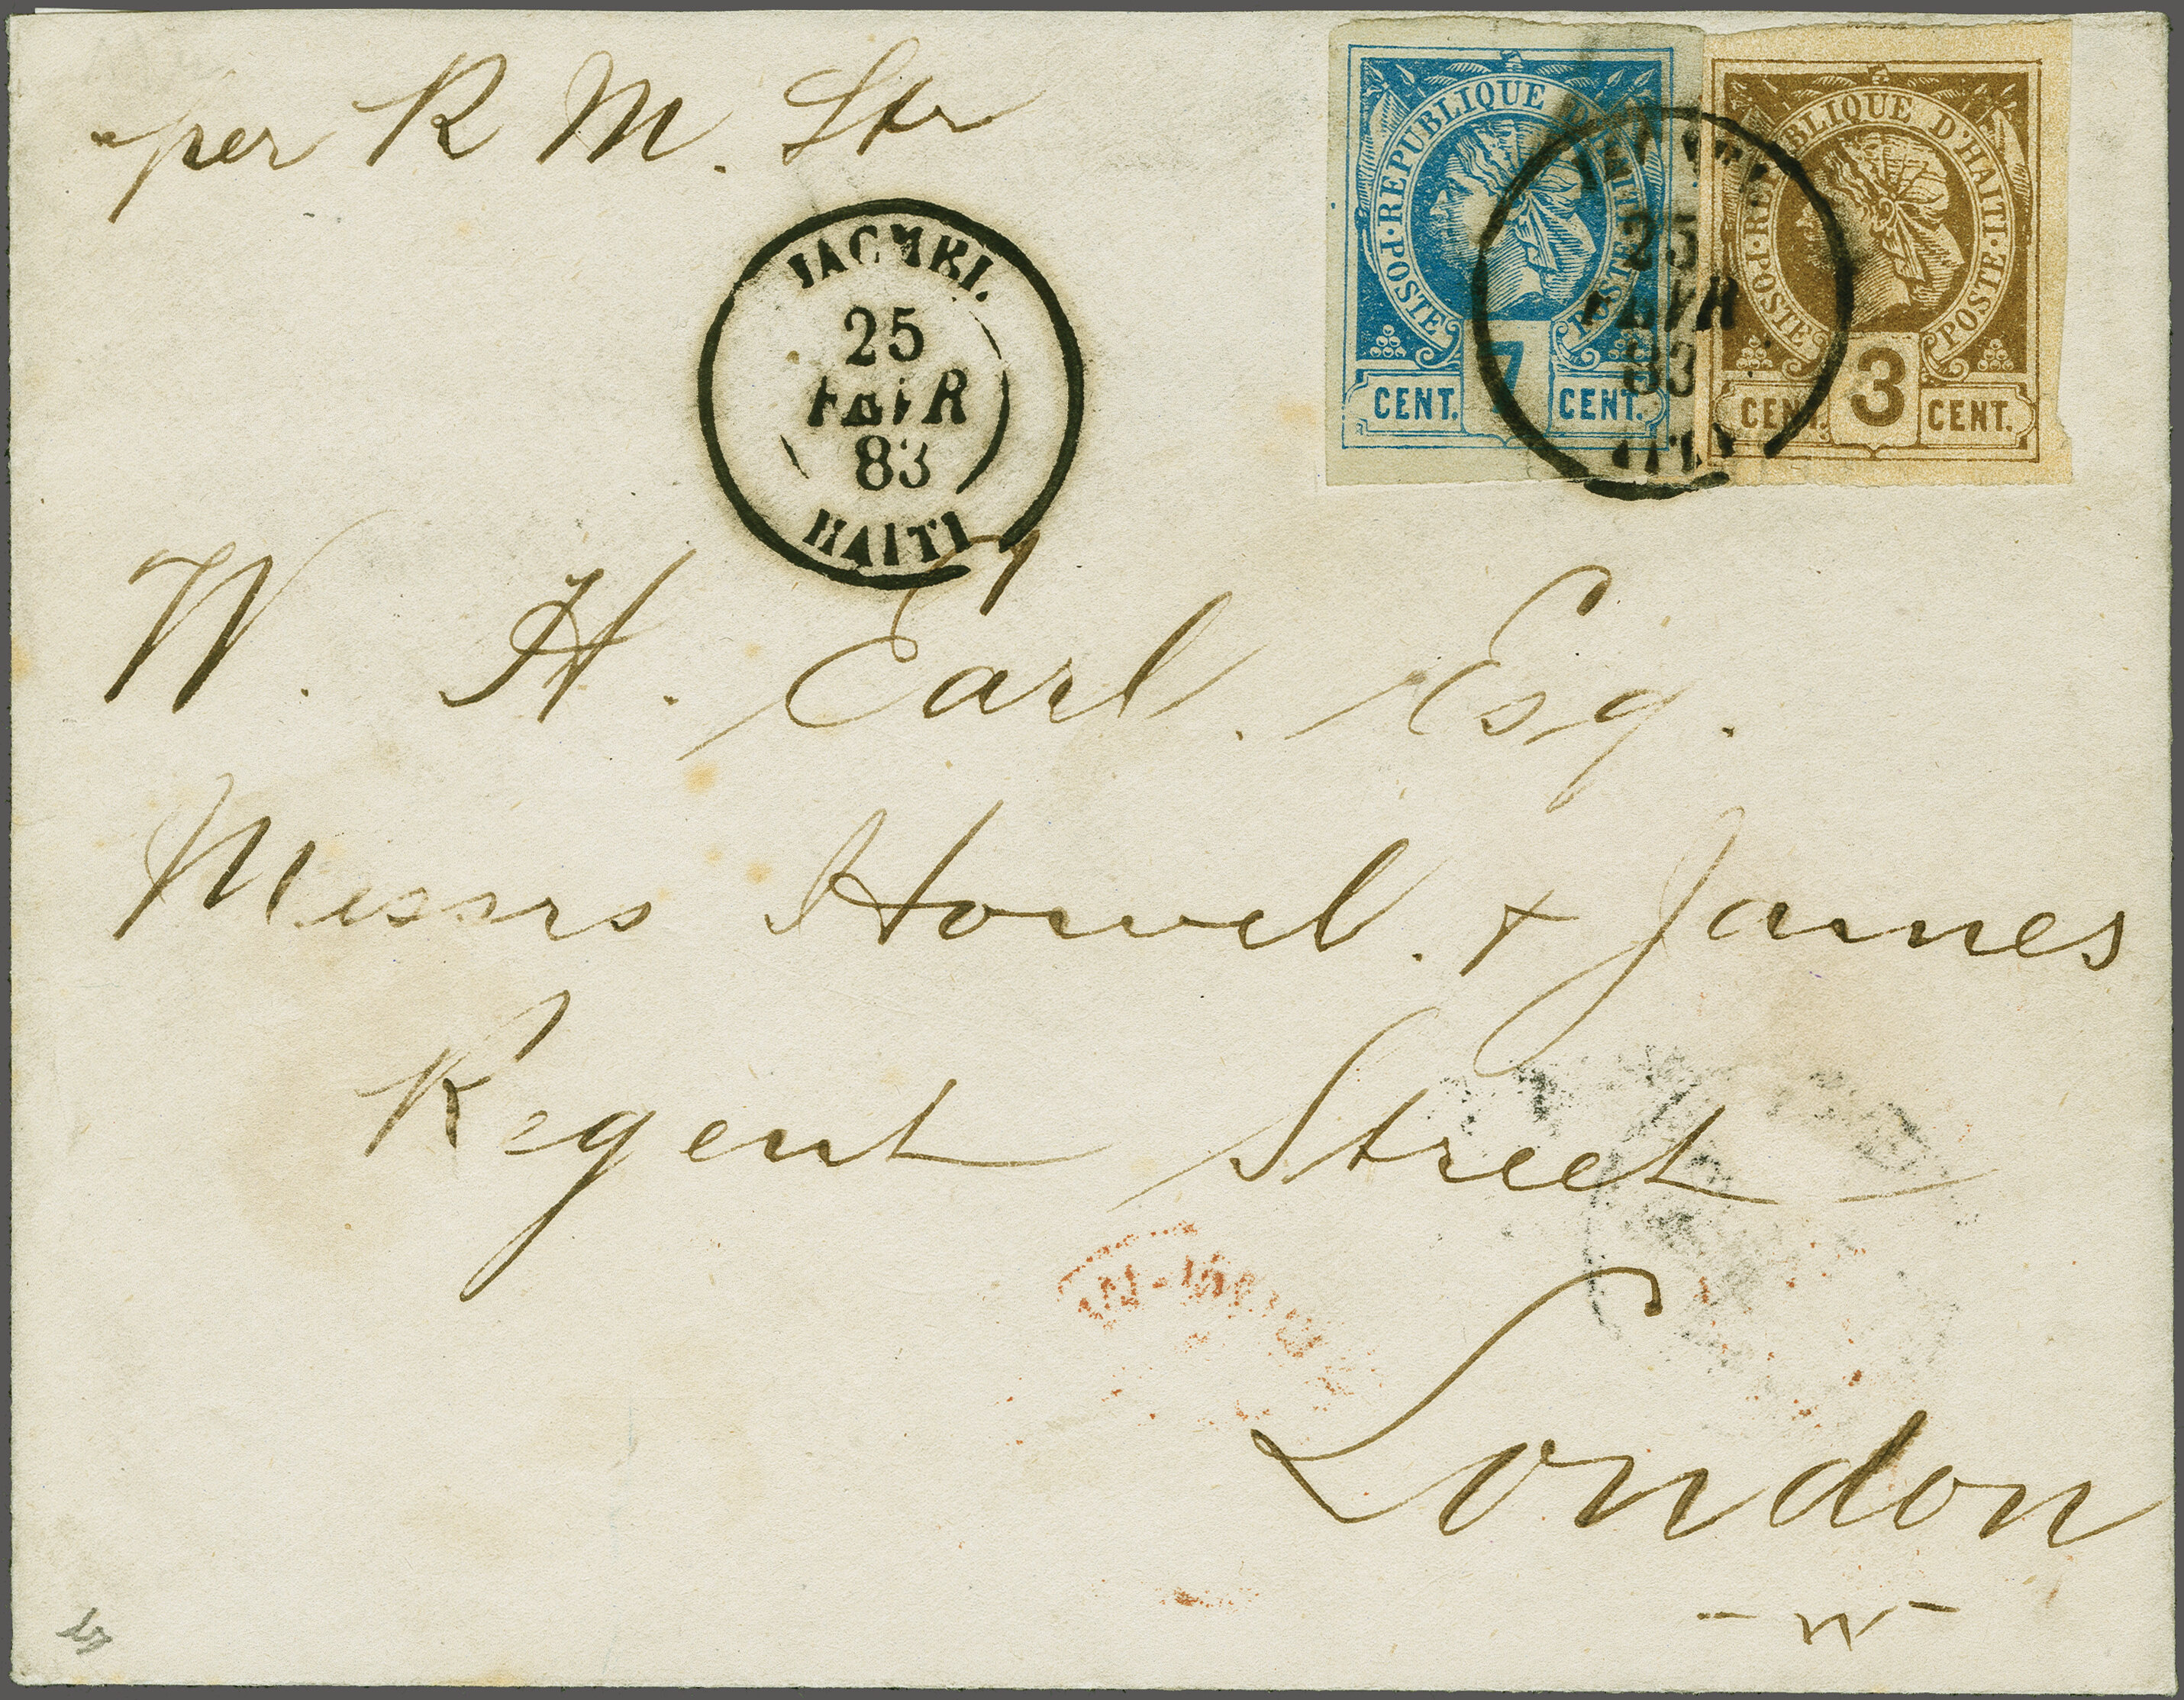 per R M. Str
POSTE · REPUBLIQUE D'HAITI · POSTE
CENT. 7 CENT.
POSTE · REPUBLIQUE D'HAITI · POSTE
CENT. 3 CENT.
25
FEVR
83
JACMEL
25
FEVR
83
HAITI
W. H. Earl. Esq.
Messrs Howel. + James
Regent Street
London
- W -